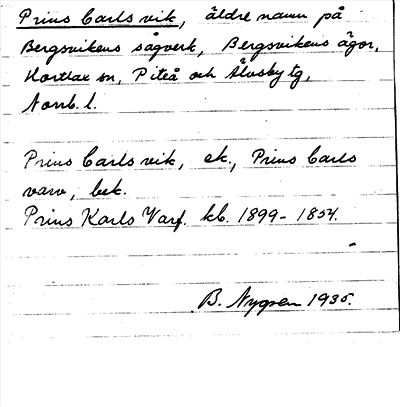 Prins Carls vik, äldre namn på
Bergsvikens sågverk, Bergsvikens ägor,
Hortlax sn, Piteå och Älvsby tg,
Norrb. l.
Prins Carls vik, ek., Prins Carls
varv, bek.
Prins Karls Varf. kb. 1899-1854.
B. Nygren 1935.